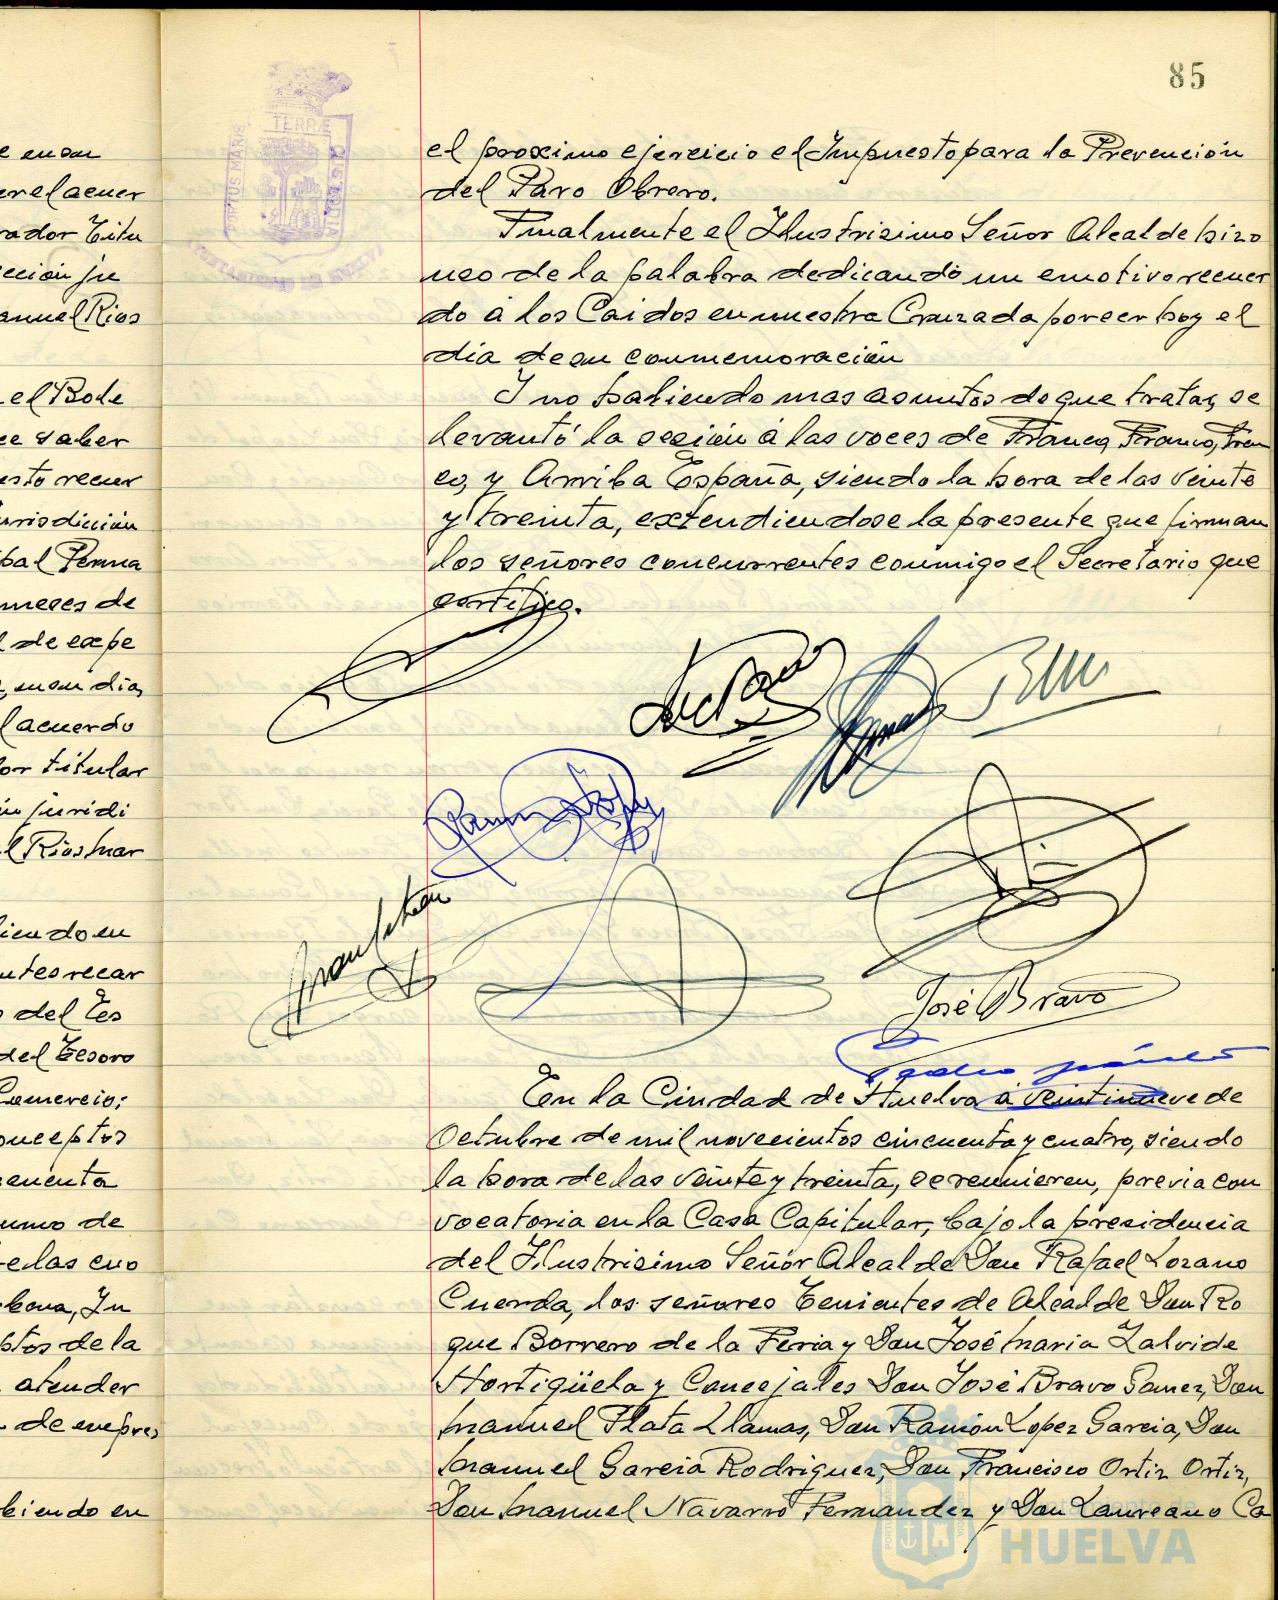 85
e en su
er el acuer
rador Titu
ección ju
anuel Rios
el Bole
ce saber
esto recur
urisdición
bal Penna
meses de
l de expe
, en su dia,
l acuerdo
or titular
ón juridi
l Rios Mar
iendo en
ntes recar
o del Tes
del Tesoro
Comercio;
onceptos
cuenta
umo de
e las cuo
bona, In
ptos de la
atender
de empres
biendo en
PORTUS MARIS
TERRÆ
CUSTODIA
AYUNTAMIENTO DE HUELVA
el proximo ejercicio el Impuesto para la Prevención
del Paro Obrero.
Finalmente el Ilustrisimo Señor Alcalde hizo
uso de la palabra dedicando un emotivo recuer
do á los Caidos en nuestra Cruzada por ser hoy el
dia de su conmemoración
Y no habiendo mas asuntos de que tratar, se
levantó la sesión á las voces de Franco, Franco, Fran
co, y Arriba España, siendo la hora de las veinte
y treinta, extendiendose la presente que firman
los señores concurrentes conmigo el Secretario que
certifico.
José Bravo
En la Ciudad de Huelva á veintinueve de
Octubre de mil novecientos cincuenta y cuatro, siendo
la hora de las veinte y treinta, se reunieren, previa con
vocatoria en la Casa Capitular, bajo la presidencia
del Ilustrisimo Señor Alcalde Don Rafael Lozano
Cuerda, los señores Tenientes de Alcalde Don Ro
que Borrero de la Feria y Don José Maria Zalvide
Hortigüela y Concejales Don José Bravo Gomez, Don
Manuel Plata Llamas, Don Ramón Lopez Garcia, Don
Manuel Garcia Rodriguez, Don Francisco Ortiz Ortiz,
Don Manuel Navarro Fernandez y Don Laureano Ca
Ayuntamiento de
HUELVA